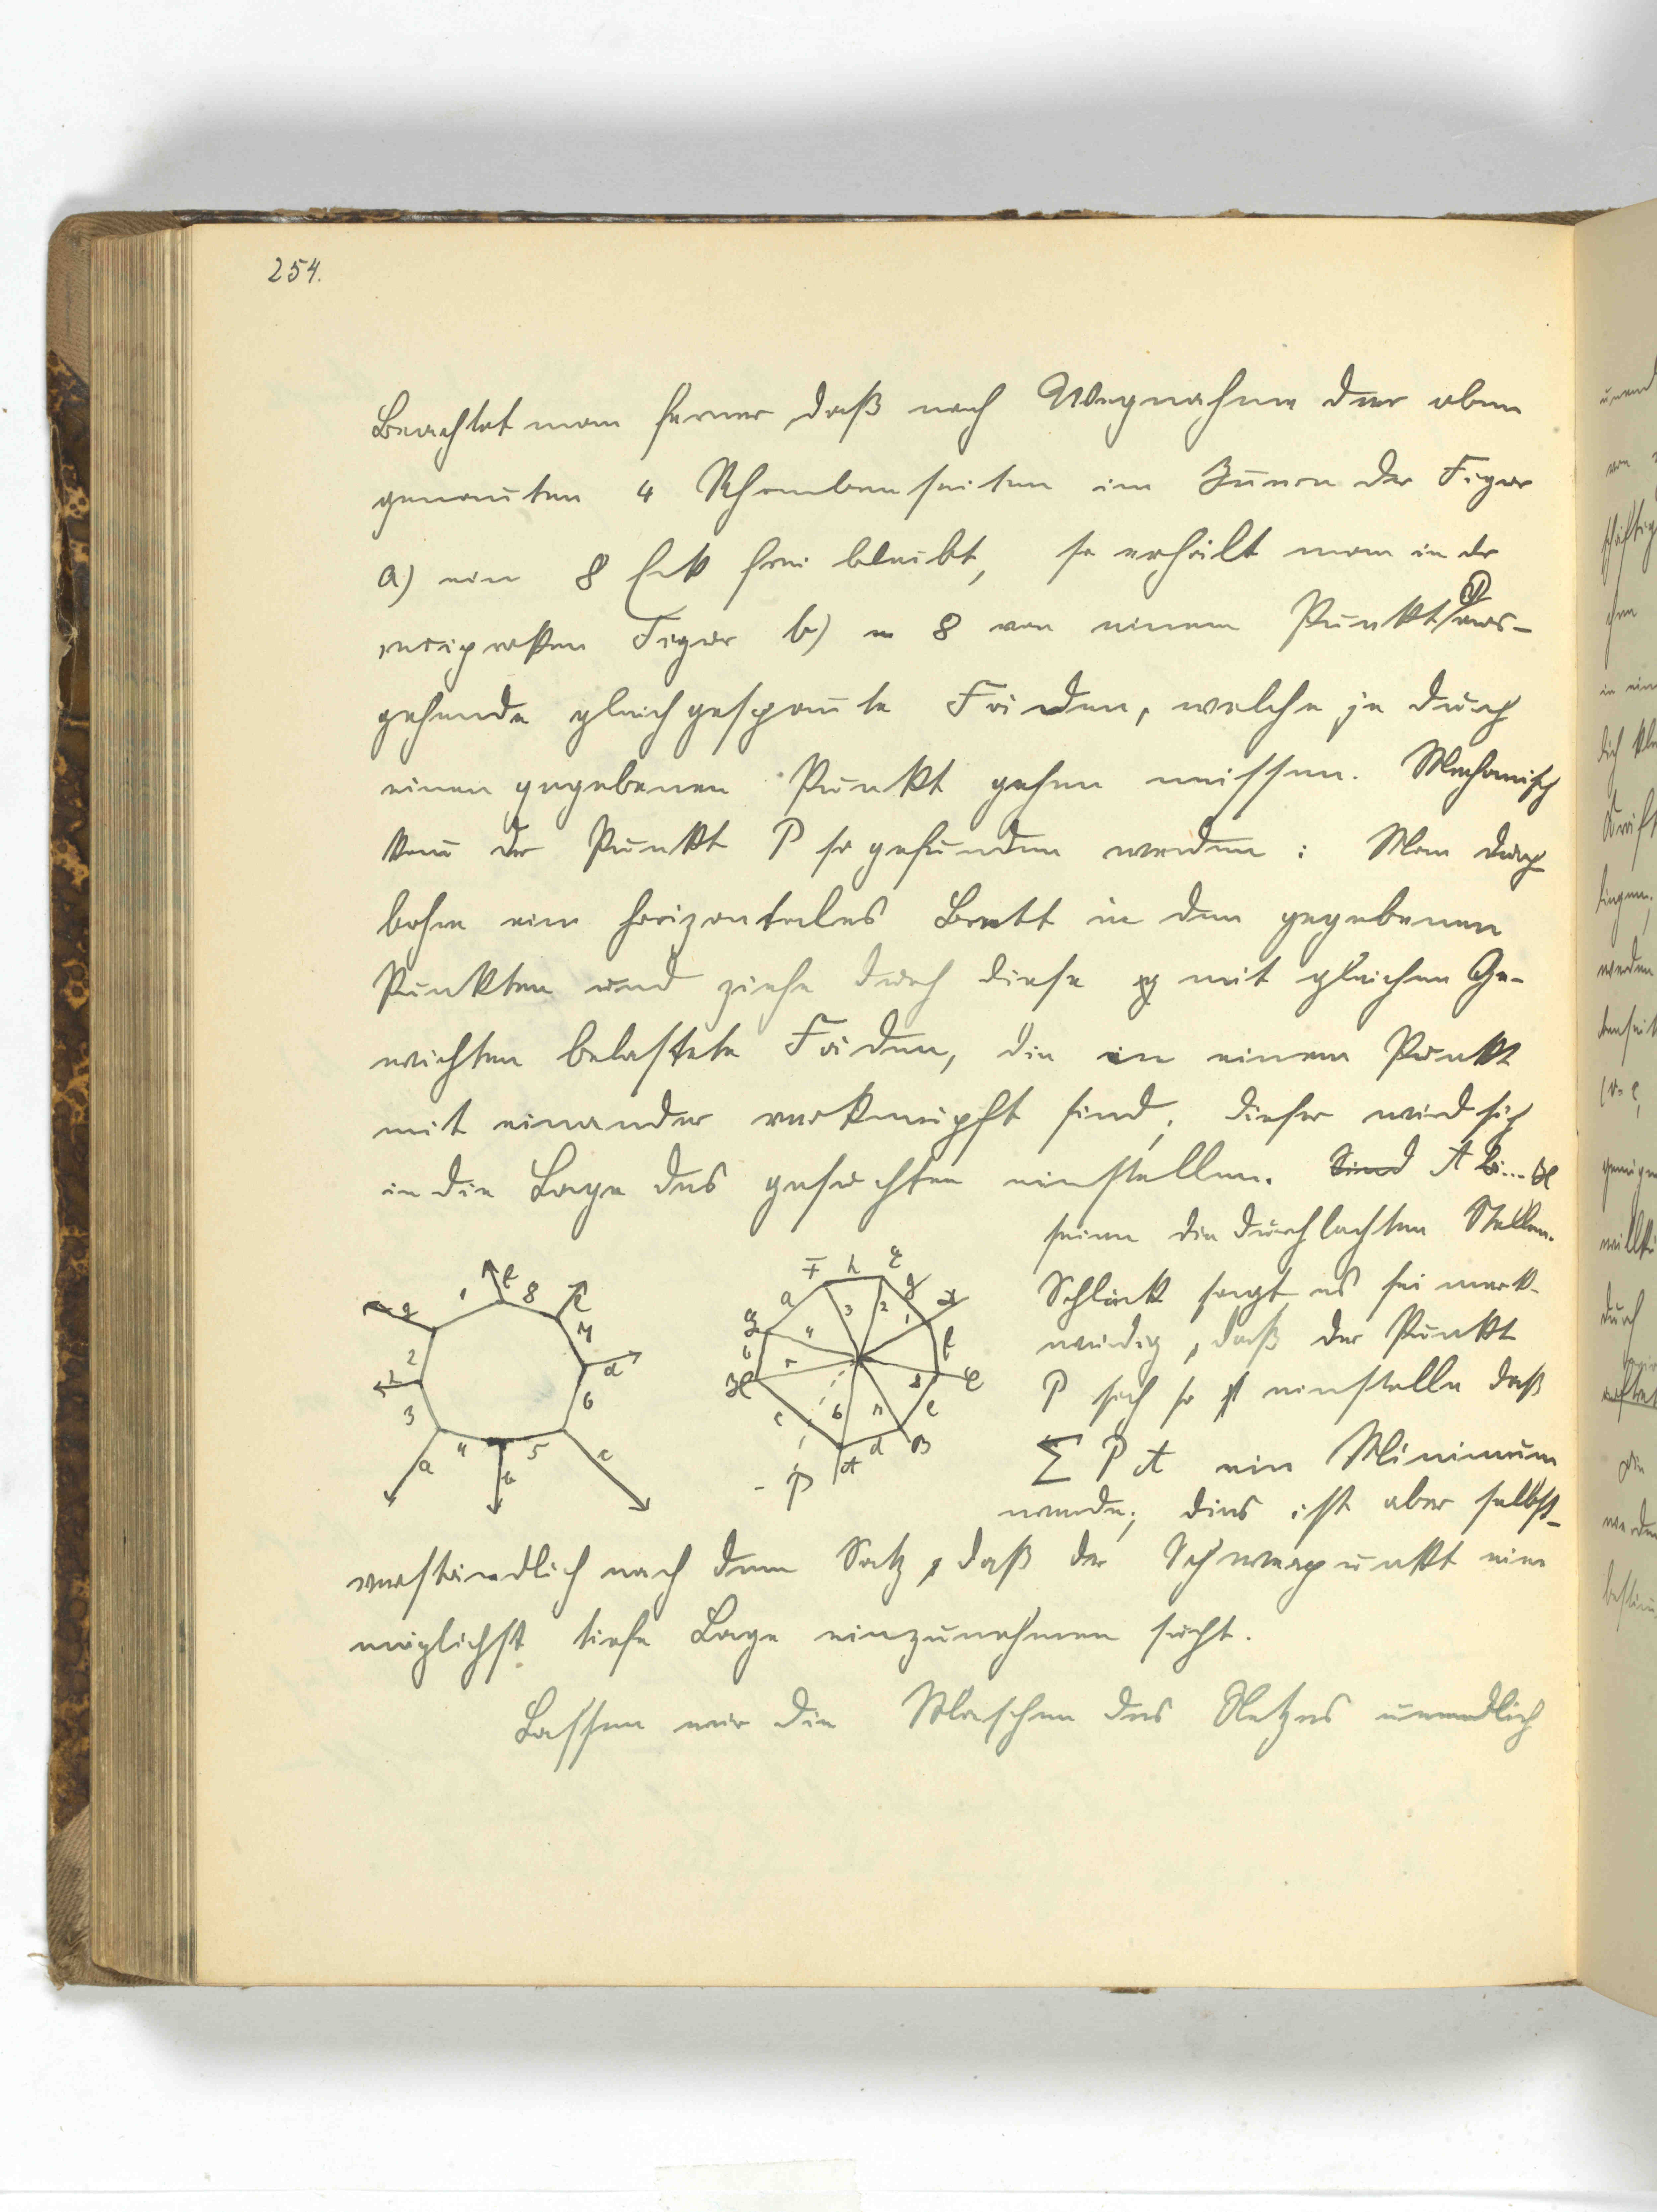 254.
Beachtet man ferner daß nach Wegnahme der oben
genannten 4 Rhombenseiten im Innern der Figur
a) ein 8 Eck frei bleibt, so erhält man in der
reciproken Figur b) 8 von einem Punkt P aus-
gehende gleichgespannte Fäden, welche je durch
einen gegebenen Punkt gehen müssen. Mechanisch
kann der Punkt P so gefunden werden: Man durch
bohre ein horizontales Brett in den gegebenen
Punkten und ziehe durch diese mit gleichen Ge-
wichten belastete Fäden, die in einem Punkt
mit einander verknüpft sind, dieser wird sich
in die Lage des gesuchten einstellen. Sind A B...H
seien die durchlochten Stellen.
Schlink sagt es sei merk-
würdig, daß der Punkt
P sich so einstelle daß
Σ PA ein Minimum
werde; dies ist aber selbst-
verständlich nach dem Satz, daß der Schwerpunkt eine
möglichst tiefe Lage einzunehmen sucht.
Lassen wir die Maschen des Netzes unendlich
g 1 f 8 e 7 d 6 c 5 b 4 a 3 h 2
F h E g D f C e B d A c H b G a
3 2 1 8 7 6 5 4
P